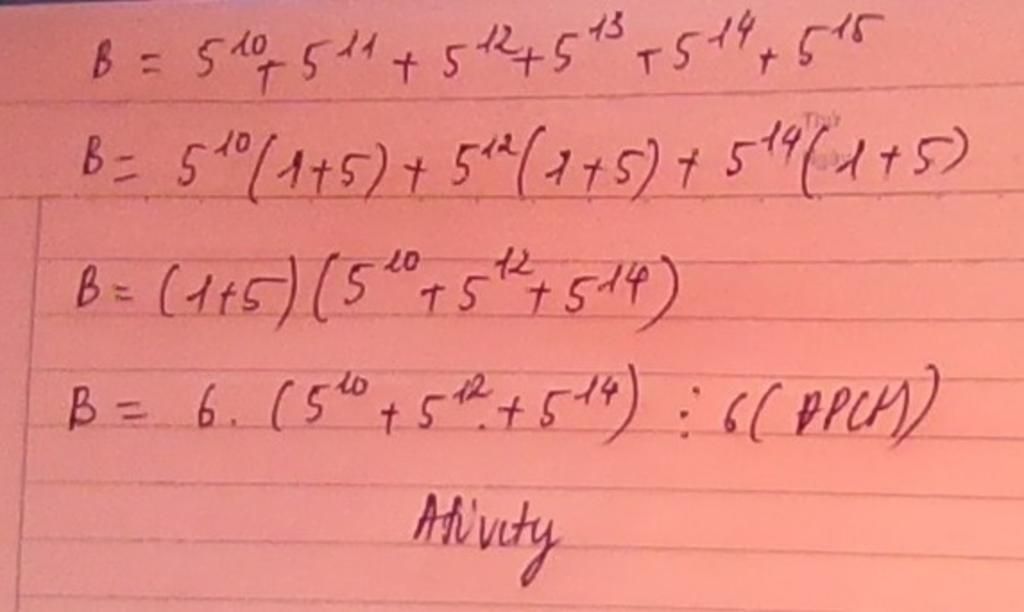 B = 5^10 + 5^11 + 5^12 + 5^13 + 5^14 + 5^15
B = 5^10 (1+5) + 5^12 (1+5) + 5^14 (1+5)
B = (1+5) (5^10 + 5^12 + 5^14)
B = 6. (5^10 + 5^12 + 5^14) ⋮ 6 (ĐPCM)